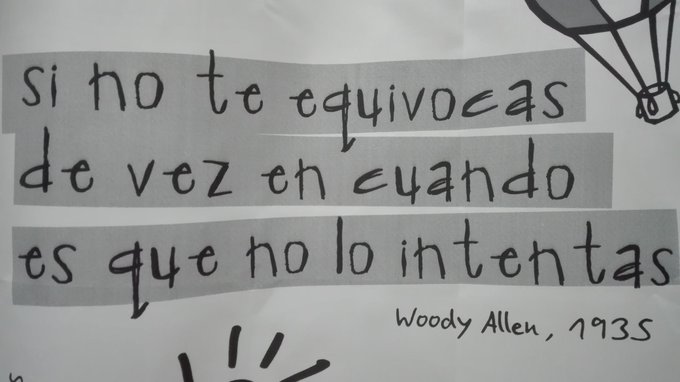 si no te equivocas
de vez en cuando
es que no lo intentas
Woody Allen, 1935